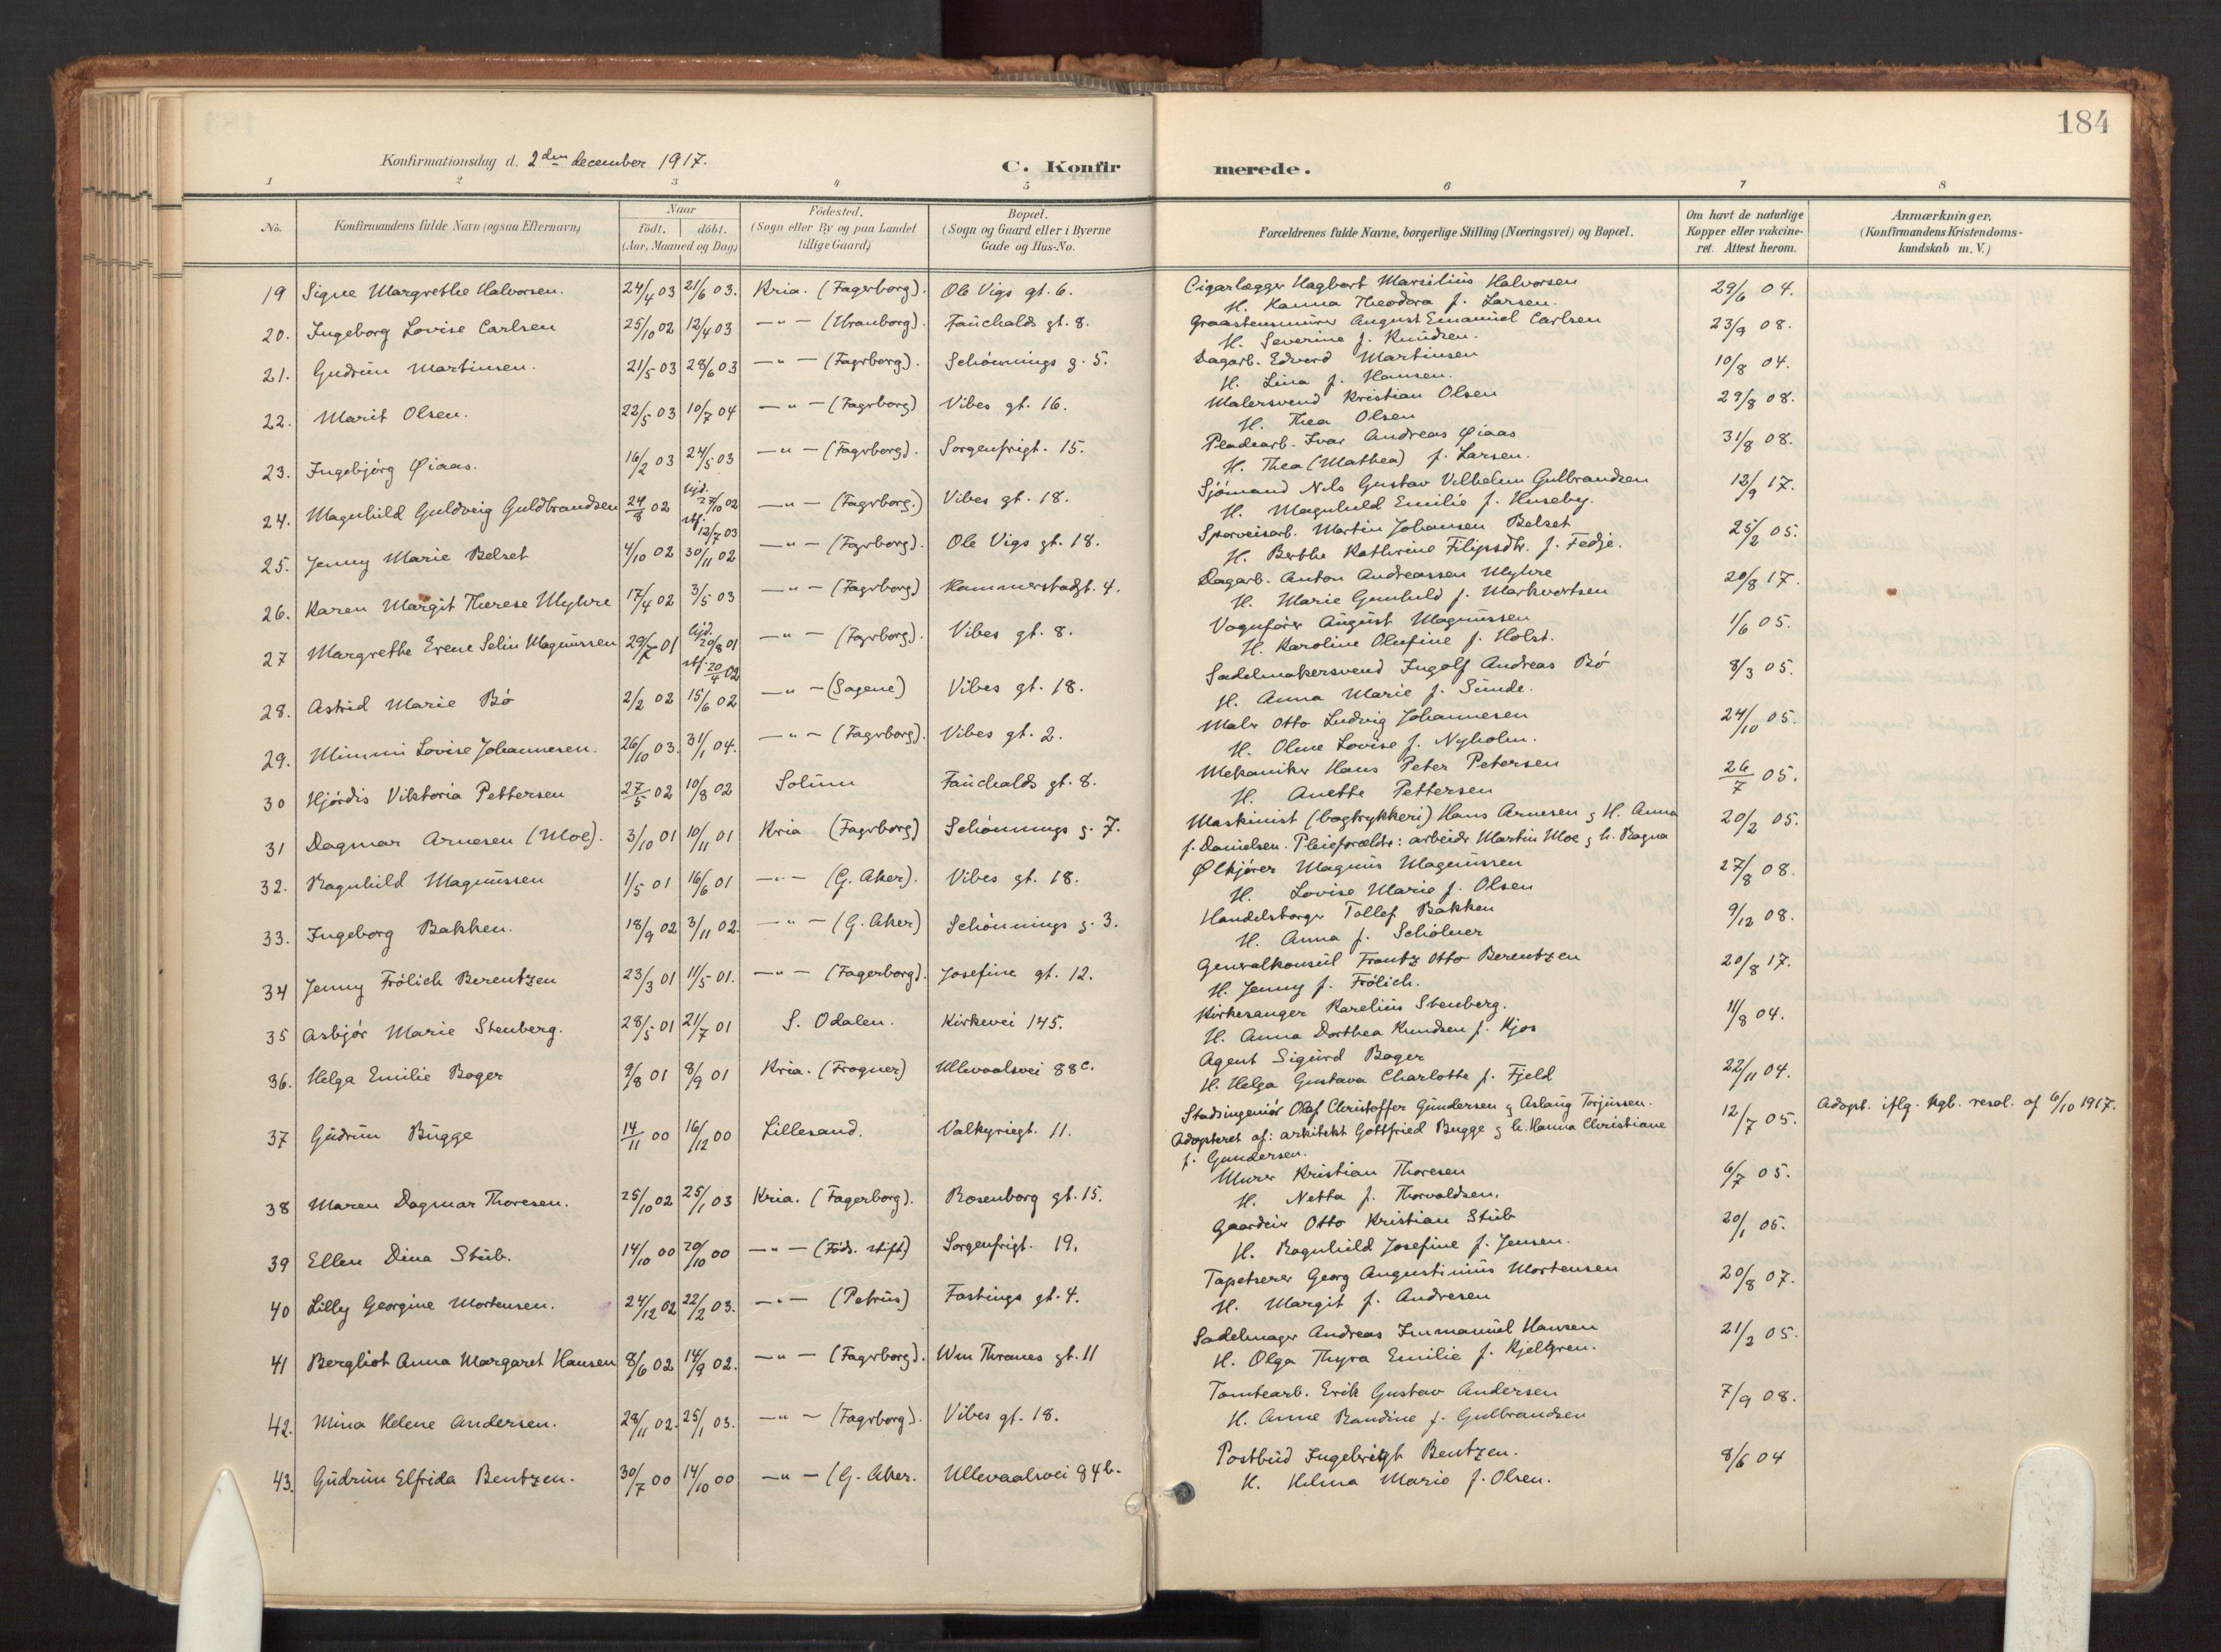 184
Konfirmationsdag d. 2den december 1917.
C. Konfirmerede.
1 2 3 4 5 6 7 8
No. Konfirmandens fulde Navn (ogsaa Efternavn) Naar födt. döbt. (Aar, Maaned og Dag) Födested. (Sogn eller By og paa Landet tillige Gaard) Bopæl. (Sogn og Gaard eller i Byerne Gade og Hus-No. Forældrenes fulde Navne, borgerlige Stilling (Næringsvei) og Bopæl. Om havt de naturlige Kopper eller vakcineret. Attest herom. Anmærkninger. (Konfirmandens Kristendomskundskab m. V.)
19 Signe Margrethe Halvorsen. 24/4 03 21/6 03. Kria. (Fagerborg). Ole Vigs gt. 6. Cigarlægger Hagbart Marsilius Halvorsen 29/6 04.
H. Hanna Theodora f. Larsen.
20. Ingeborg Lovise Carlsen 25/10 02 12/4 03 —"— (Uranborg). Fauchalds gt. 8. Graastensmurer August Emanuel Carlsen 23/9 08.
H. Severine f. Knudsen.
21. Gudrun Martinsen. 21/5 03 28/6 03 —"— (Fagrborg). Schönnings g. 5. Dagarb. Edvard Martinsen 10/8 04.
H. Lina f. Hansen.
22. Marit Olsen. 22/5 03 10/7 04 —"— (Fagrborg) Vibes gt. 16. Malersvend Kristian Olsen 29/8 08.
H. Thea Olsen
23. Ingebjörg Øiaas. 16/2 03 24/5 03 —"— (Fagrborg). Sorgenfrigt. 15. Pladearb. Ivar Andreas Øiaas 31/8 08.
H. Thea (Mathea) f. Larsen.
24. Magnhild Guldveig Guldbrandsen 24/8 02 hjd. 27/10 02 stf. 12/7 03 —"— (Fagrborg.) Vibes gt. 18. Sjömand Nils Gustav Vilhelm Gulbrandsen 12/9 17.
H. Magnhild Emilie f. Huseby.
25. Jenny Marie Belset 4/10 02 30/11 02 —"— (Fagrborg). Ole Vigs gt. 18. Sporveisarb. Martin Johansen Belset 25/2 05.
H. Berthe Kathrine Filipsdtr. f. Fedje.
26. Karen Margit Therese Myhre 17/4 02 3/5 03 —"— (Fagrborg) Hammerstadgt. 4. Dagarb. Anton Andreassen Myhre 20/8 17.
H. Marie Gunhild f. Markvortsen
27 Margrethe Evene Selin Magnussen 29/7 01 hjd. 20/8 01 stf. 20/4 02 —"— (Fagrborg). Vibes gt. 8. Vognfører August Magnussen 1/6 05.
H. Karoline Olufine f. Holst.
28. Astrid Marie Bö 2/2 02 15/6 02 —"— (Sagene) Vibes gt. 18. Sadelmakersvend Ingolf Andreas Bö 8/3 05.
H. Anna Marie f. Sunde.
29. Mimmi Lovise Johannesen. 26/10 03. 31/1 04. —"— (Fagrborg). Vibes gt. 2. Maler Otto Ludvig Johannesen 24/10 05.
H. Oline Lovise f. Nyholm.
30 Hjördis Viktoria Pettersen 27/5 02 10/8 02 Solum Fauchalds gt. 8. Mekaniker Hans Peter Petersen 26/7 05.
H. Anette Pettersen
31 Dagmar Arnesen (Moe). 3/10 01 10/11 01 Kria (Fagrborg) Schönnings g. 7. Maskinist (bogtrykkeri) Hans Arnesen g H. Anna 20/2 05.
f. Danielsen. Pleieforældre: arbeider Martin Moe g h. Ragna
32. Ragnhild Magnussen 1/5 01 16/6 01 —"— (G. Aker). Vibes gt. 18. Ølkjörer Magnus Magnussen 27/8 08.
H. Lovise Marie f. Olsen
33. Ingeborg Bakken. 18/9 02 3/11 02. —"— (G. Aker) Schönnings g. 3. Handelsborger Tollef Bakken 9/12 08.
H. Anna f. Schölner
34 Jenny Frölich Berentzen 23/3 01 11/5 01. —"— (Fagerborg). Josefine gt. 12. Generalkonsul Frantz Otto Berentzen 20/8 17.
H. Jenny f. Frölich.
35 Asbjör Marie Stenberg. 28/5 01 21/7 01 S. Odalen. Kirkevei 145. Kirkesanger Karelius Stenberg. 11/8 04.
H. Anna Dorthea Knudsen f. Kjos
36. Helga Emilie Bager 9/8 01 8/9 01 Kria. (Frogner) Ullevaalsvei 88c. Agent Sigurd Bager 22/11 04.
H. Helga Gustava Charlotte f. Fjeld
37 Gudrun Bugge 14/11 00 16/12 00 Lillesand. Valkyriegt. 11. Stadsingeniör Olaf Christoffer Gundersen g Aslaug Torjussen. 12/7 05. Adopt. iflg. kgl. resol. af 6/10 1917.
Adopteret af: arkitekt Gottfried Bugge g h. Hanna Christiane
f. Gundersen.
38 Maren Dagmar Thoresen. 25/10 02 25/1 03 Kria. (Fagerborg). Rosenborg gt. 15. Murer Kristian Thoresen 6/7 05.
H. Netta f. Thorvaldsen.
39 Ellen Dina Stub. 14/10 00 20/10 00 —"— (Föds. stift) Sorgenfrigt. 19. Gaardeier Otto Kristian Stub 20/1 05.
H. Ragnhild Josefine f. Jensen.
40 Lilly Georgine Mortensen. 24/12 02 22/2 03. —"— (Petrus) Fastings gt. 4. Tapetserer Georg Augustinius Mortensen 20/8 07.
H. Margit f. Andresen
41 Bergliot Anna Margaret Hansen 8/6 02 14/9 02. —"— (Fagrborg). Wm Thranes gt. 11 Sadelmager Andreas Immanuel Hansen 21/2 05.
H. Olga Thyra Emilie f. Kjellgren.
42. Mina Helene Andersen. 28/11 02. 25/1 03. —"— (Fagrborg). Vibes gt. 18. Tomtearb. Erik Gustav Andersen 7/9 08.
H. Anne Randine f. Gulbrandsen
43. Gudrun Elfrida Bentzen. 30/7 00 14/10 00 —"— (G. Aker. Ullevaalsvei 84b. Postbud Ingebrigt Bentzen. 8/6 04
H. Helma Marie f. Olsen.